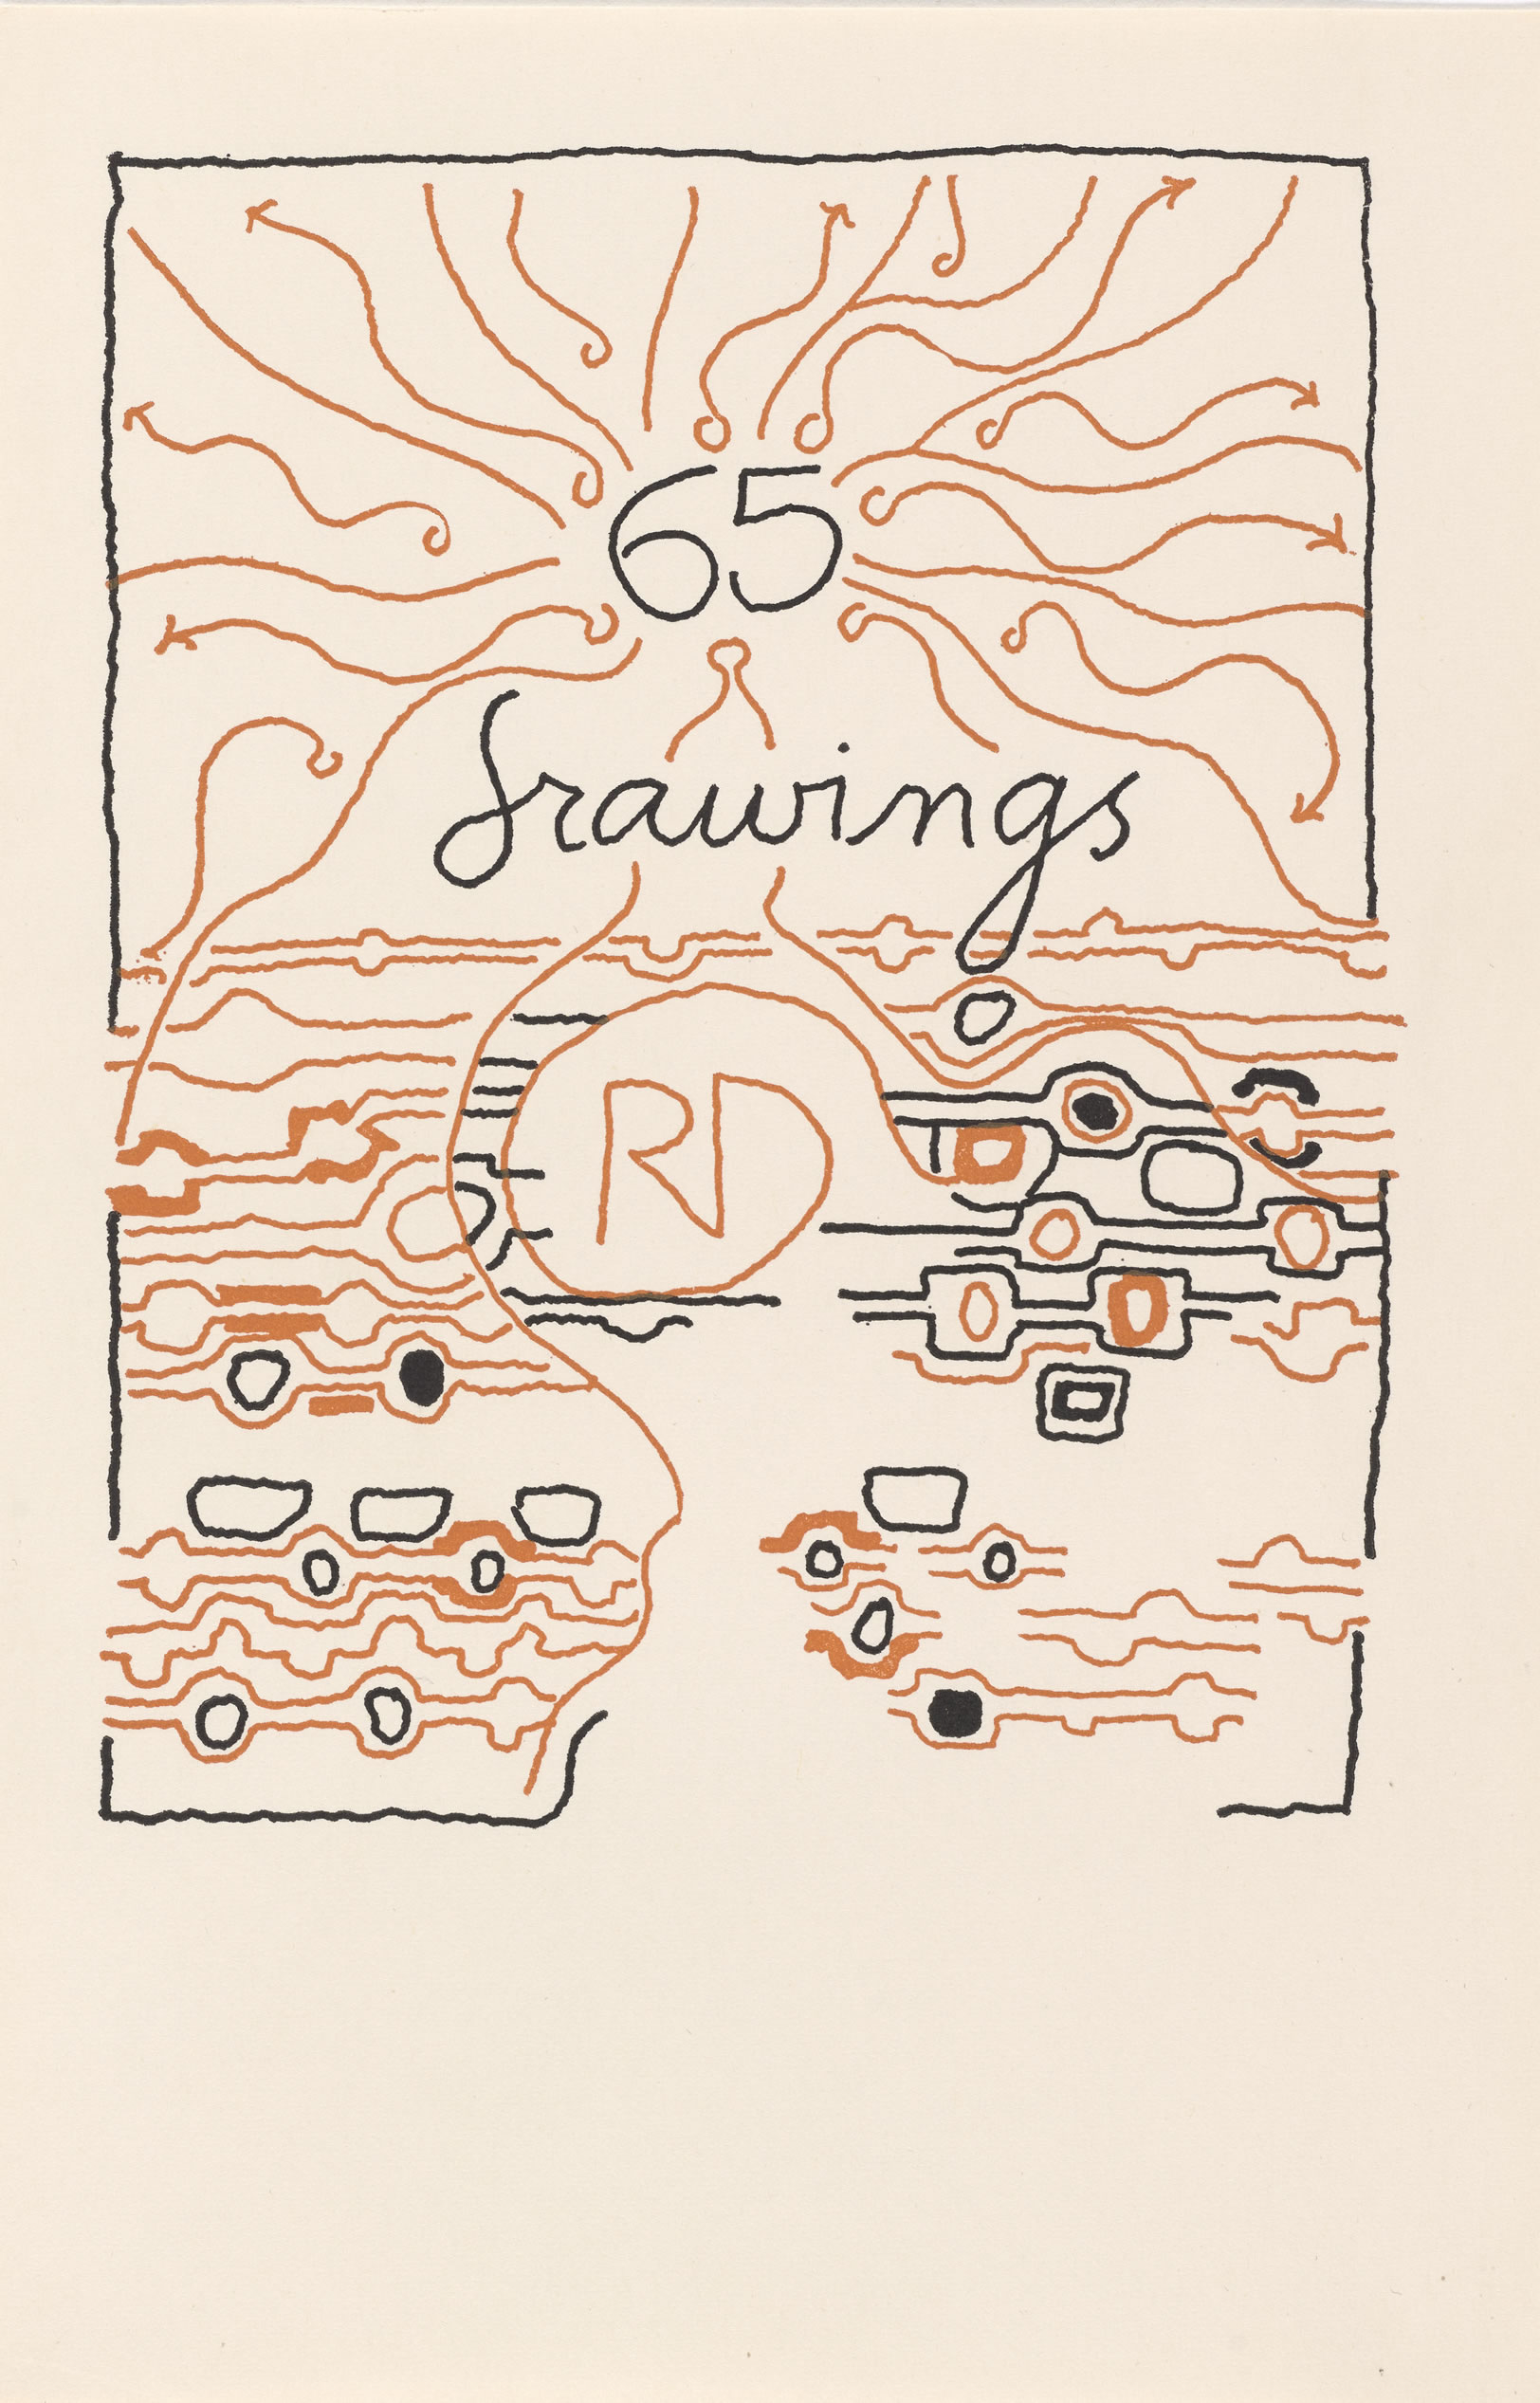 65
drawings
RD